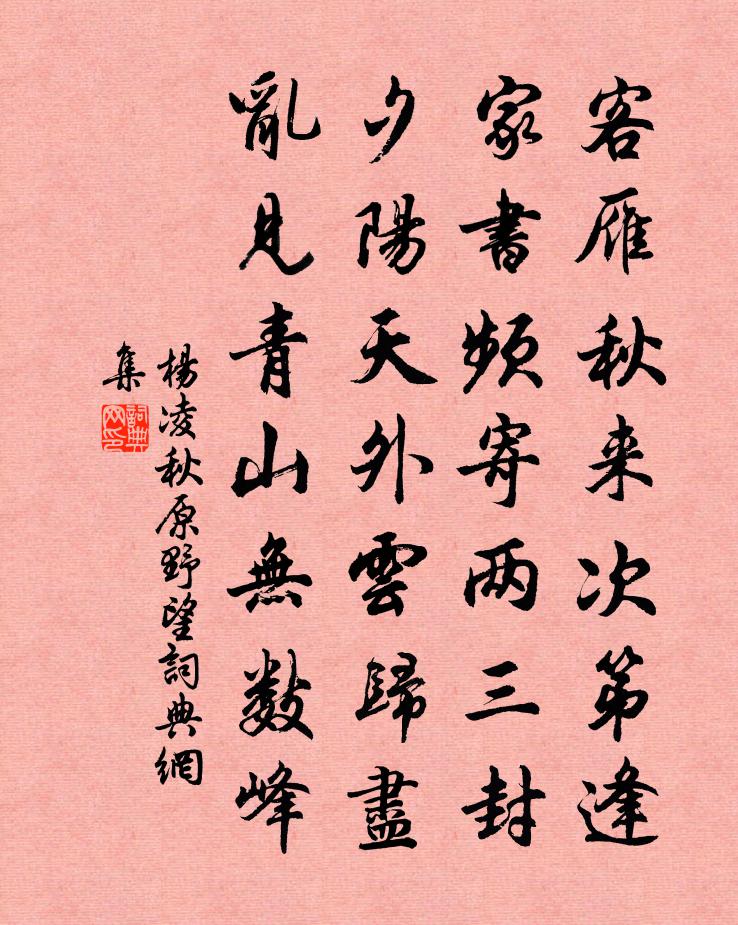 客雁秋来次第逢
家書頻寄两三封
夕陽天外雲歸盡
亂見青山無數峰
楊凌秋原野望詞典網
集
詞典
网印